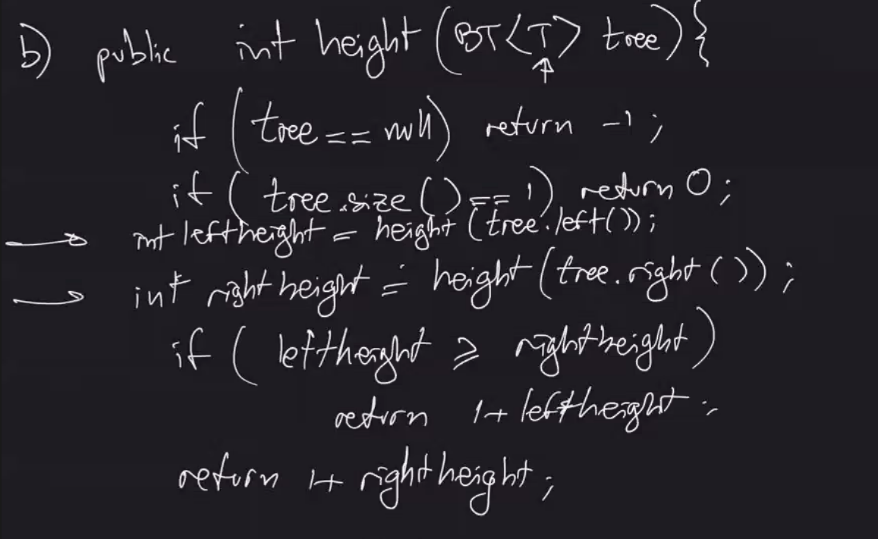 b) public int height (BT<T> tree) {
if (tree == null) return -1;
if (tree.size() == 1) return 0;
int leftheight = height (tree.left());
int rightheight = height (tree.right());
if (leftheight ≥ rightheight)
return 1+ leftheight;
return 1+ rightheight;